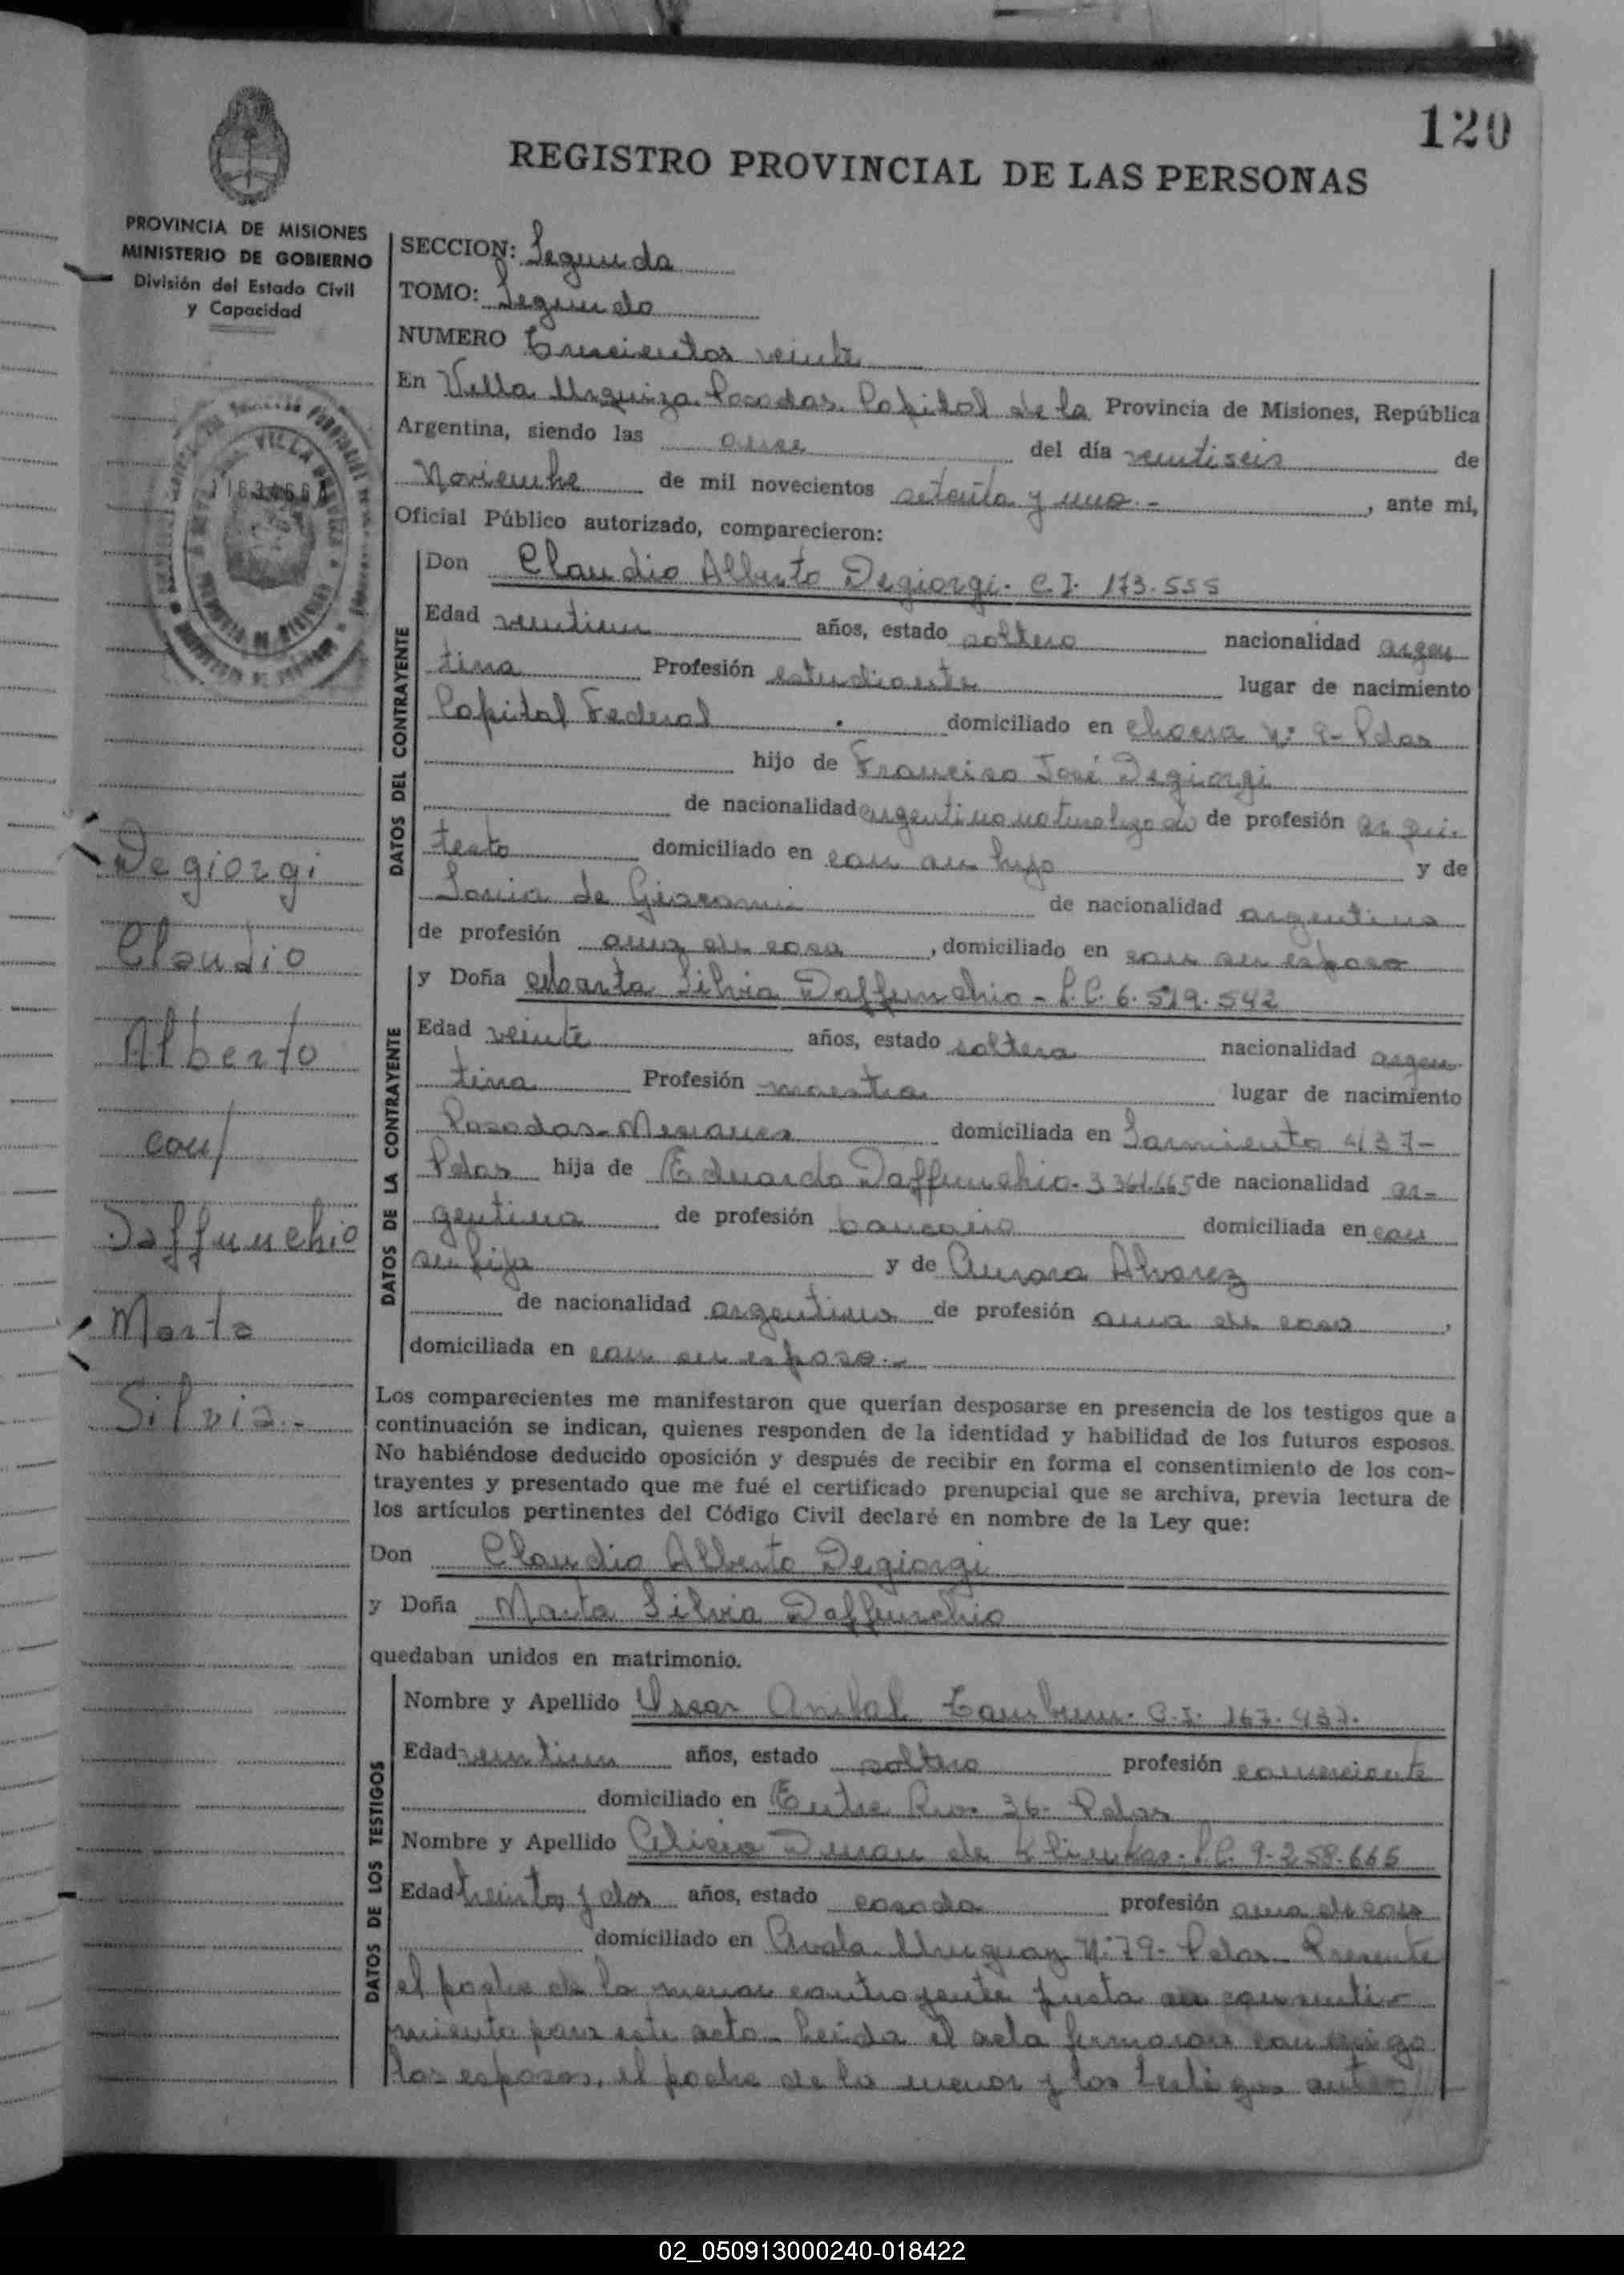 120
REGISTRO PROVINCIAL DE LAS PERSONAS
PROVINCIA DE MISIONES
MINISTERIO DE GOBIERNO
División del Estado Civil
y Capacidad
SECCION: Segunda
TOMO: Segundo
NUMERO Trescientos veinte
En Villa Urquiza Posadas, Capital de la Provincia de Misiones, República
Argentina, siendo las once del día veintiseis de
Noviembre de mil novecientos setenta y uno.- , ante mi,
Oficial Público autorizado, comparecieron:
DATOS DEL CONTRAYENTE
Don Claudio Alberto Degiorgi. C.I. 173.555
Edad veintiun años, estado soltero nacionalidad argen
tina Profesión estudiante lugar de nacimiento
Capital Federal domiciliado en chacra Nº 9- Pdas
hijo de Francisco José Degiorgi
de nacionalidad argentino naturalizado de profesión arqui-
tecto domiciliado en con su hijo y de
Sonia de Giacomi de nacionalidad argentina
de profesión ama de casa , domiciliado en con su esposo
DATOS DE LA CONTRAYENTE
y Doña Marta Silvia Daffunchio - L.C. 6.519.542
Edad veinte años, estado soltera nacionalidad argen
tina Profesión maestra lugar de nacimiento
Posadas-Misiones domiciliada en Sarmiento 437-
Pdas hija de Eduardo Daffunchio. 3.361.665 de nacionalidad ar-
gentina de profesión bancario domiciliada en con
su hija y de Aurora Alvarez
de nacionalidad argentina de profesión ama de casa ,
domiciliada en con su esposo.-
Los comparecientes me manifestaron que querían desposarse en presencia de los testigos que a
continuación se indican, quienes responden de la identidad y habilidad de los futuros esposos.
No habiéndose deducido oposición y después de recibir en forma el consentimiento de los con-
trayentes y presentado que me fué el certificado prenupcial que se archiva, previa lectura de
los artículos pertinentes del Código Civil declaré en nombre de la Ley que:
Don Claudio Alberto Degiorgi
y Doña Marta Silvia Daffunchio
quedaban unidos en matrimonio.
DATOS DE LOS TESTIGOS
Nombre y Apellido Oscar Anibal C.I. 167.437.
Edad veintiun años, estado soltero profesión comerciante
domiciliado en Entre Rios 36- Pdas
Nombre y Apellido Alicia Duran de L.C. 9.258.666
Edad treinta y dos años, estado casada profesión ama de casa
domiciliado en Avda. Uruguay Nº 79- Pdas Presente
el padre de la menor contrayente presta su consenti-
miento para este acto- Leida el acta firmaron conmigo
los esposos, el padre de la menor y los testigos antes
Degiorgi
Claudio
Alberto
con/
Daffunchio
Marta
Silvia.-
02_050913000240-018422